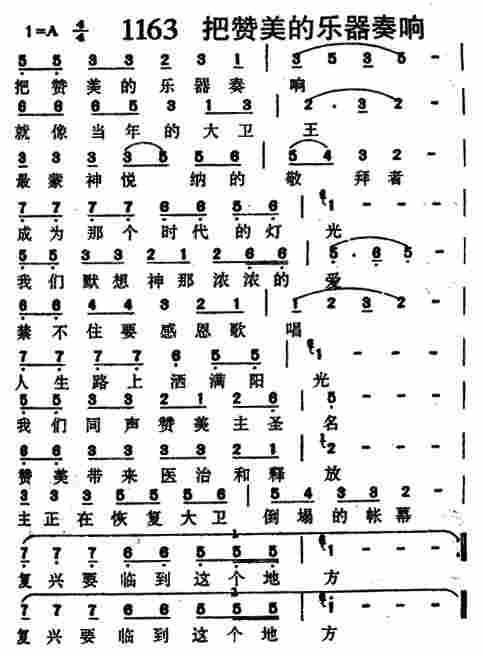 1=A 4/4 1163 把赞美的乐器奏响
5 5 3 3 2 3 1 | 3 5 3 5 - |
把赞美的乐器奏 响
6 6 6 5 3 1 3 | 2 · 3 2 - |
就像当年的大卫 王
3 3 3 3 5 5 6 | 5 4 3 2 - |
最蒙神悦 纳的 敬 拜者
7 7 7 7 6 6 6 5 | 1 - - - |
成为那个时代的灯 光
5 5 3 3 2 1 2 6 6 | 5 · 6 5 - |
我们默想神那浓浓的 爱
6 6 4 4 3 2 2 1 | 1 2 3 2 - |
禁不住要感恩歌 唱
7 7 7 7 6 5 5 | 1 - - - |
人生路上洒满阳 光
5 5 3 3 2 1 2 6 | 5 - - - |
我们同声赞美主圣 名
6 6 3 3 3 2 3 1 | 2 - - - |
赞美带来医治和释 放
3 3 3 5 5 5 6 | 5 4 3 3 2 - |
主正在恢复大卫 倒塌的帐幕
1.
7 7 7 6 6 5 5 5 | 1 - - - :|
复兴要临到这个地 方
2.
7 7 7 6 6 5 5 5 | 1 - - - ||
复兴要临到这个地 方